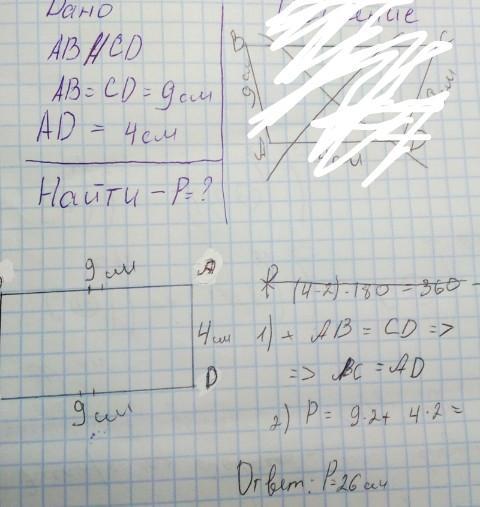 Дано
AB//CD
AB = CD = 9 см
AD = 4 см
Найти - P = ?
B
9 см
A
9 см
A
4 см
D
9 см
(4-2)·180 = 360
1) AB = CD =>
=> BC = AD
2) P = 9·2 + 4·2 =
Ответ: P=26 см